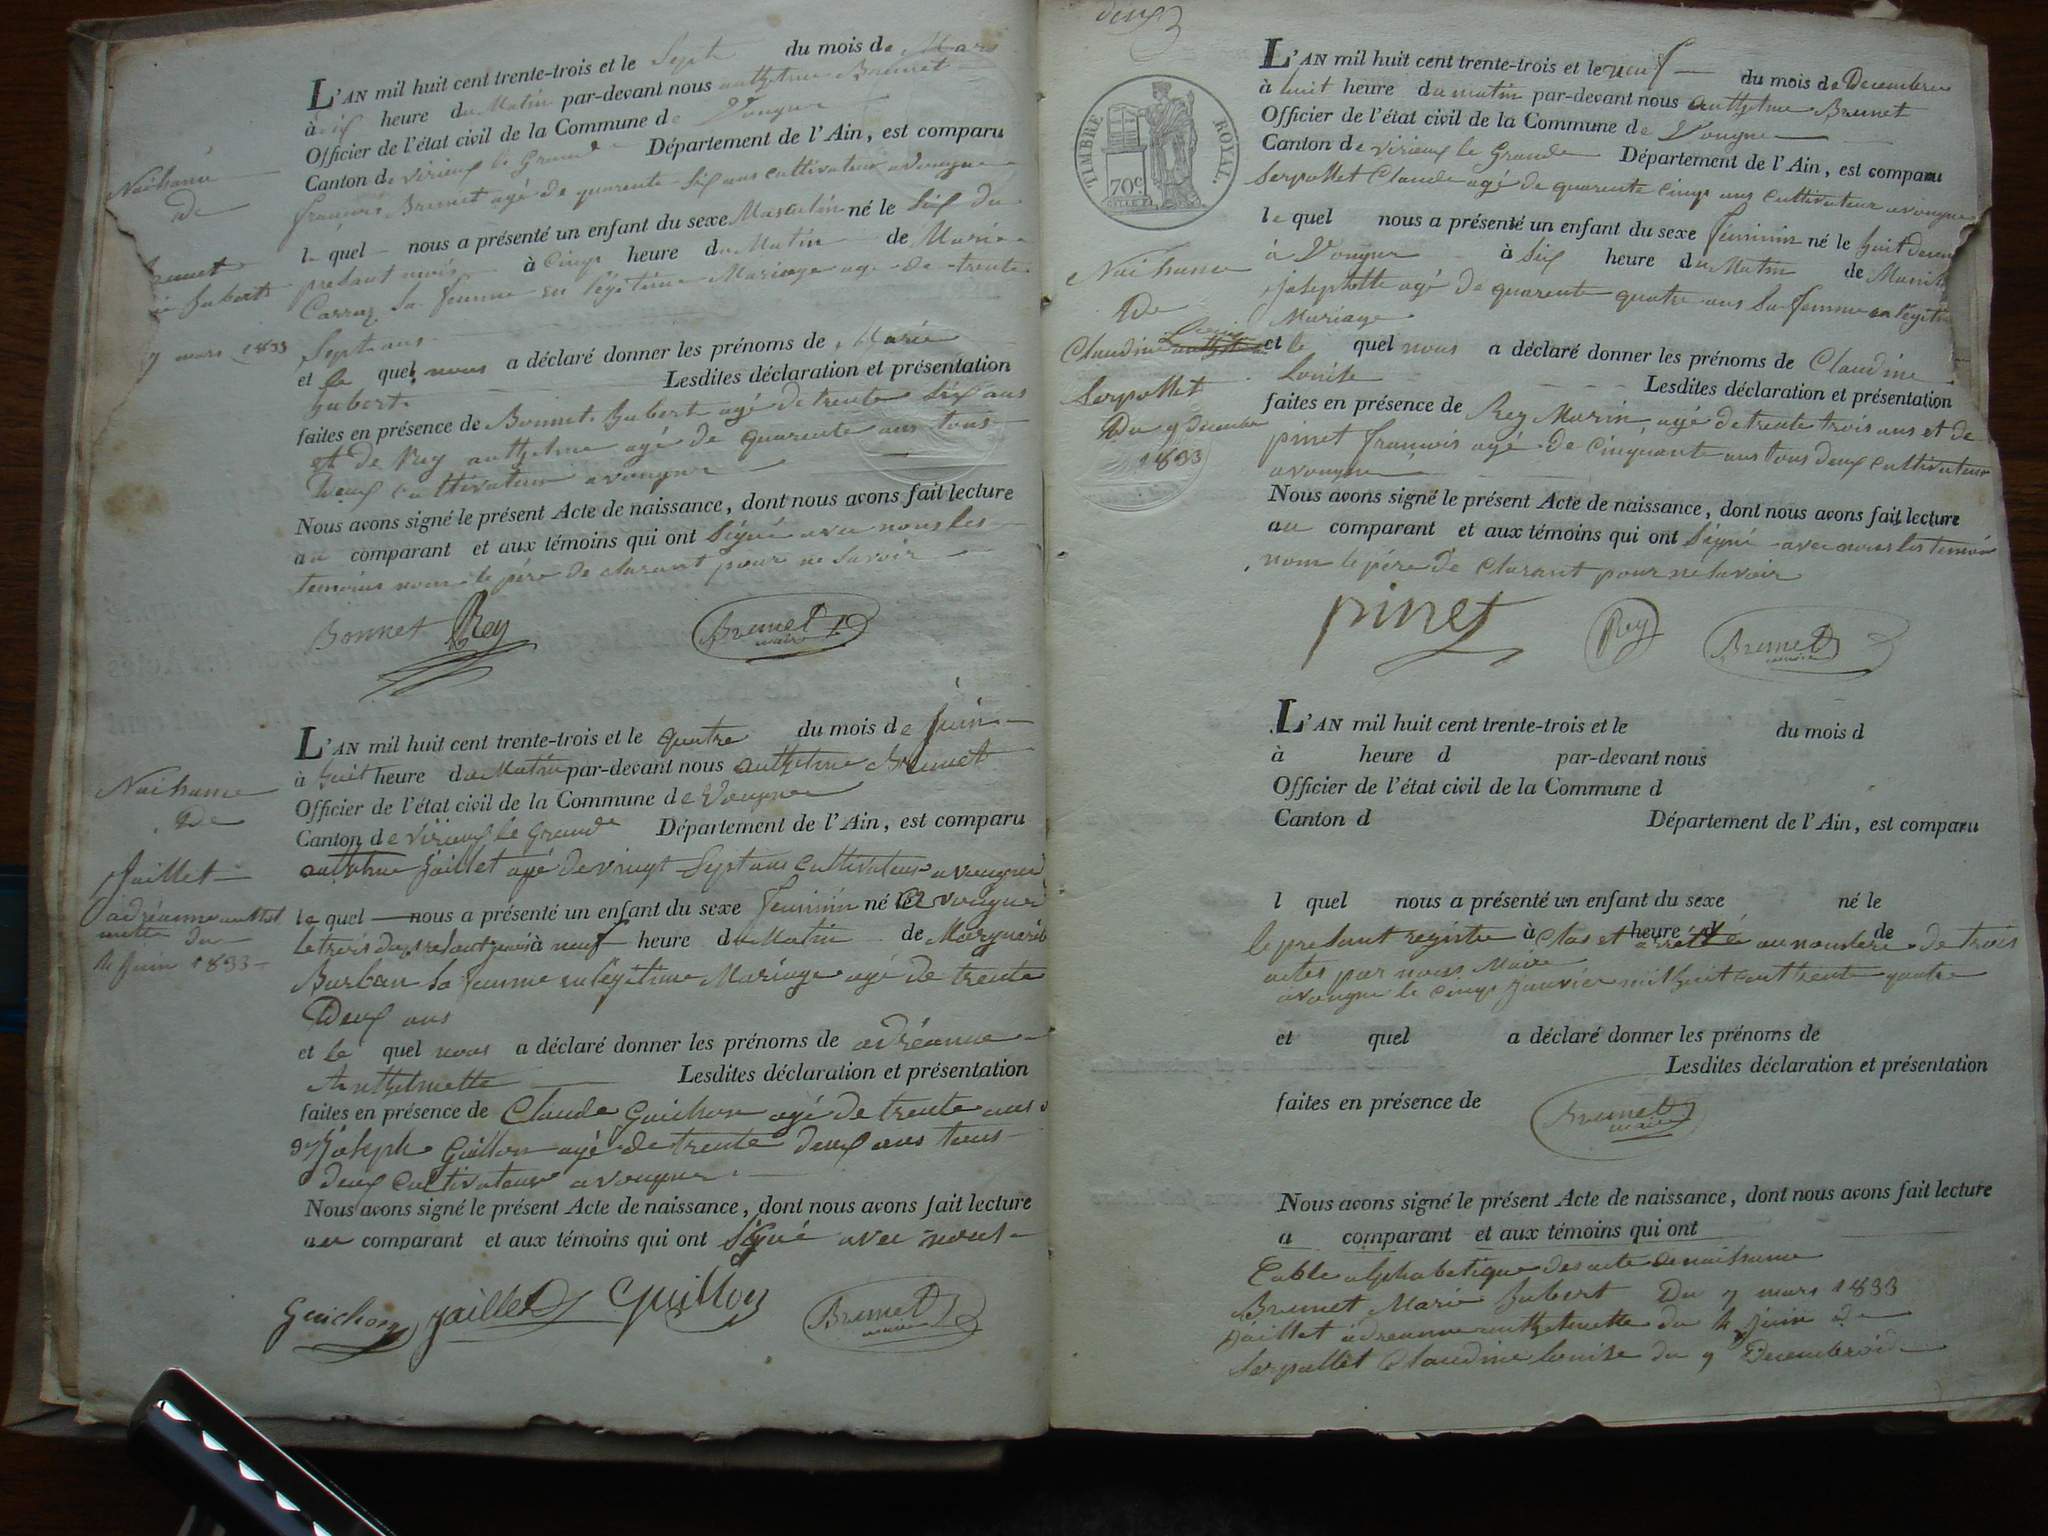 L'AN mil huit cent trente-trois et le Sept du mois de Mars
à six heure du Matin par-devant nous anthelme Brunet
Officier de l'état civil de la Commune de Vongne
Canton de virieux le Grand Département de l'Ain, est comparu
françois Brunet agé de quarente-six ans cultivateur a vongne
le quel nous a présenté un enfant du sexe Masculin né le Six du
présant mois à cinq heure du Matin de Marie
Carraz Sa femme en légitime Mariage agé de trente
Sept ans
et le quel nous a déclaré donner les prénoms de Marie
hubert. Lesdites déclaration et présentation
faites en présence de Bonnet hubert agé de trente Six ans
et de Rey anthelme agé de quarente ans tous
Deux cultivateur a vongne
Nous avons signé le présent Acte de naissance, dont nous avons fait lecture
au comparant et aux témoins qui ont Signé avec nous les
temoins nom le pére de clarant pour ne Savoir
Bonnet Rey Brunet maire
Naihance
De
Brunet
hubert
7 mars 1833
L'AN mil huit cent trente-trois et le quatre du mois de Juin
à huit heure du Matin par-devant nous anthelme Brunet
Officier de l'état civil de la Commune de Vongne
Canton de virieux le Grand Département de l'Ain, est comparu
anthelme Jaillet agé de vingt Sept ans cultivateur a vongne
le quel nous a présenté un enfant du sexe feminin né a vongne
le trois du présant mois à neuf heure du Matin de Marguerite
Burban Sa femme en légitime Mariage agé de trente
Deux ans
et le quel nous a déclaré donner les prénoms de adréanne
Anthelmette Lesdites déclaration et présentation
faites en présence de Claude Guichon agé de trente ans
et Joseph Guillon agé de trente deux ans tous
deux cultivateur a vongne
Nous avons signé le présent Acte de naissance, dont nous avons fait lecture
au comparant et aux témoins qui ont Signé avec nous
Guichon Jaillet Guillon Brunet maire
Naihance
De
Jaillet
adréanne anthel
mette du
4 Juin 1833
deux
TIMBRE ROYAL.
70c
L'AN mil huit cent trente-trois et le neuf du mois de Decembre
à huit heure du matin par-devant nous anthelme Brunet
Officier de l'état civil de la Commune de Vongne
Canton de virieux le Grand Département de l'Ain, est comparu
Serpollet Claude agé de quarente cinq ans cultivateur a vongne
le quel nous a présenté un enfant du sexe féminin né le huit
à Vongne à Six heure du Matin de
Josephte agé de quarente quatre ans Sa femme en legitime
Mariage
et le quel nous a déclaré donner les prénoms de Claudine
Louise Lesdites déclaration et présentation
faites en présence de Rey Marin, agé de trente trois ans et de
pinet françois agé de cinquante ans tous deux cultivateur
a vongne
Nous avons signé le présent Acte de naissance, dont nous avons fait lecture
au comparant et aux témoins qui ont Signé avec nous les temoin
nom le pére de clarant pour ne Savoir
pinet Rey Brunet maire
Naihance
De
Claudine Louise
Serpollet
Du 9 Decembre
1833
L'AN mil huit cent trente-trois et le du mois d
à heure d par-devant nous
Officier de l'état civil de la Commune d
Canton d Département de l'Ain, est comparu
l quel nous a présenté un enfant du sexe né le
à heure d de
le presant registre clos et arrêtté au nombre de trois
actes par nous Maire
a vongne le cinq Janvier mil huit cent trente quatre
et quel a déclaré donner les prénoms de
Lesdites déclaration et présentation
faites en présence de
Brunet maire
Nous avons signé le présent Acte de naissance, dont nous avons fait lecture
a comparant et aux témoins qui ont
Table alphabetique des acte de naihance
Brunet Marie hubert Du 7 mars 1833
Jaillet adreanne anthelmette du 4 Juin d
Serpollet Claudine Louise du 9 Decembre id